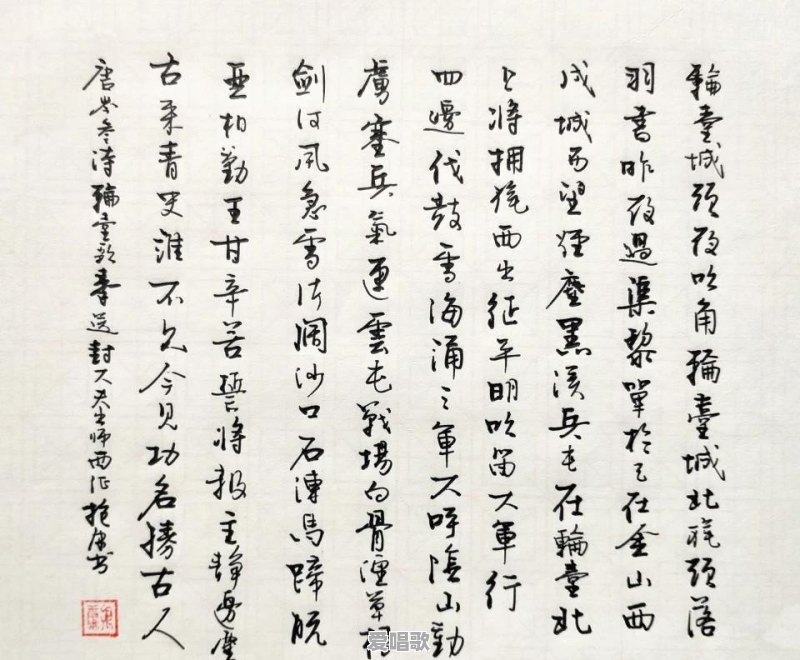 輪臺城頭夜吹角輪臺城北旄頭落
羽書昨夜過渠黎單於已在金山西
戍城西望煙塵黑漢兵屯在輪臺北
上將擁旄西出征平明吹笛大軍行
四邊伐鼓雪海涌三軍大呼陰山動
虜塞兵氣連雲屯戰場白骨纏草根
劍河風急雪片闊沙口石凍馬蹄脫
亞相勤王甘辛苦誓將報主靜邊塵
古來青史誰不見今見功名勝古人
唐岑參詩輪臺歌奉送封大夫出師西征 書
爱唱歌